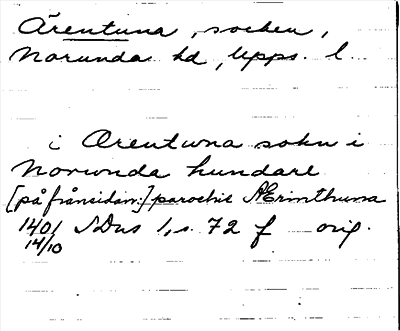 Ärentuna, socken,
Norunda hd, Upps. l.
i Ærentuna sokn i
Norunda hundare
[på frånsidan:] parochie Ærinthuna
1401 SDns 1, s. 72 f orig.
14/10